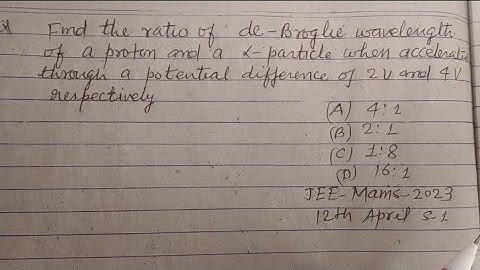 Find the ratio of de-Broglie wavelength
of a proton and a α-particle when accelerated
through a potential difference of 2V and 4V
respectively
(A) 4:1
(B) 2:1
(C) 1:8
(D) 16:1
JEE-Mains-2023
12th April S1